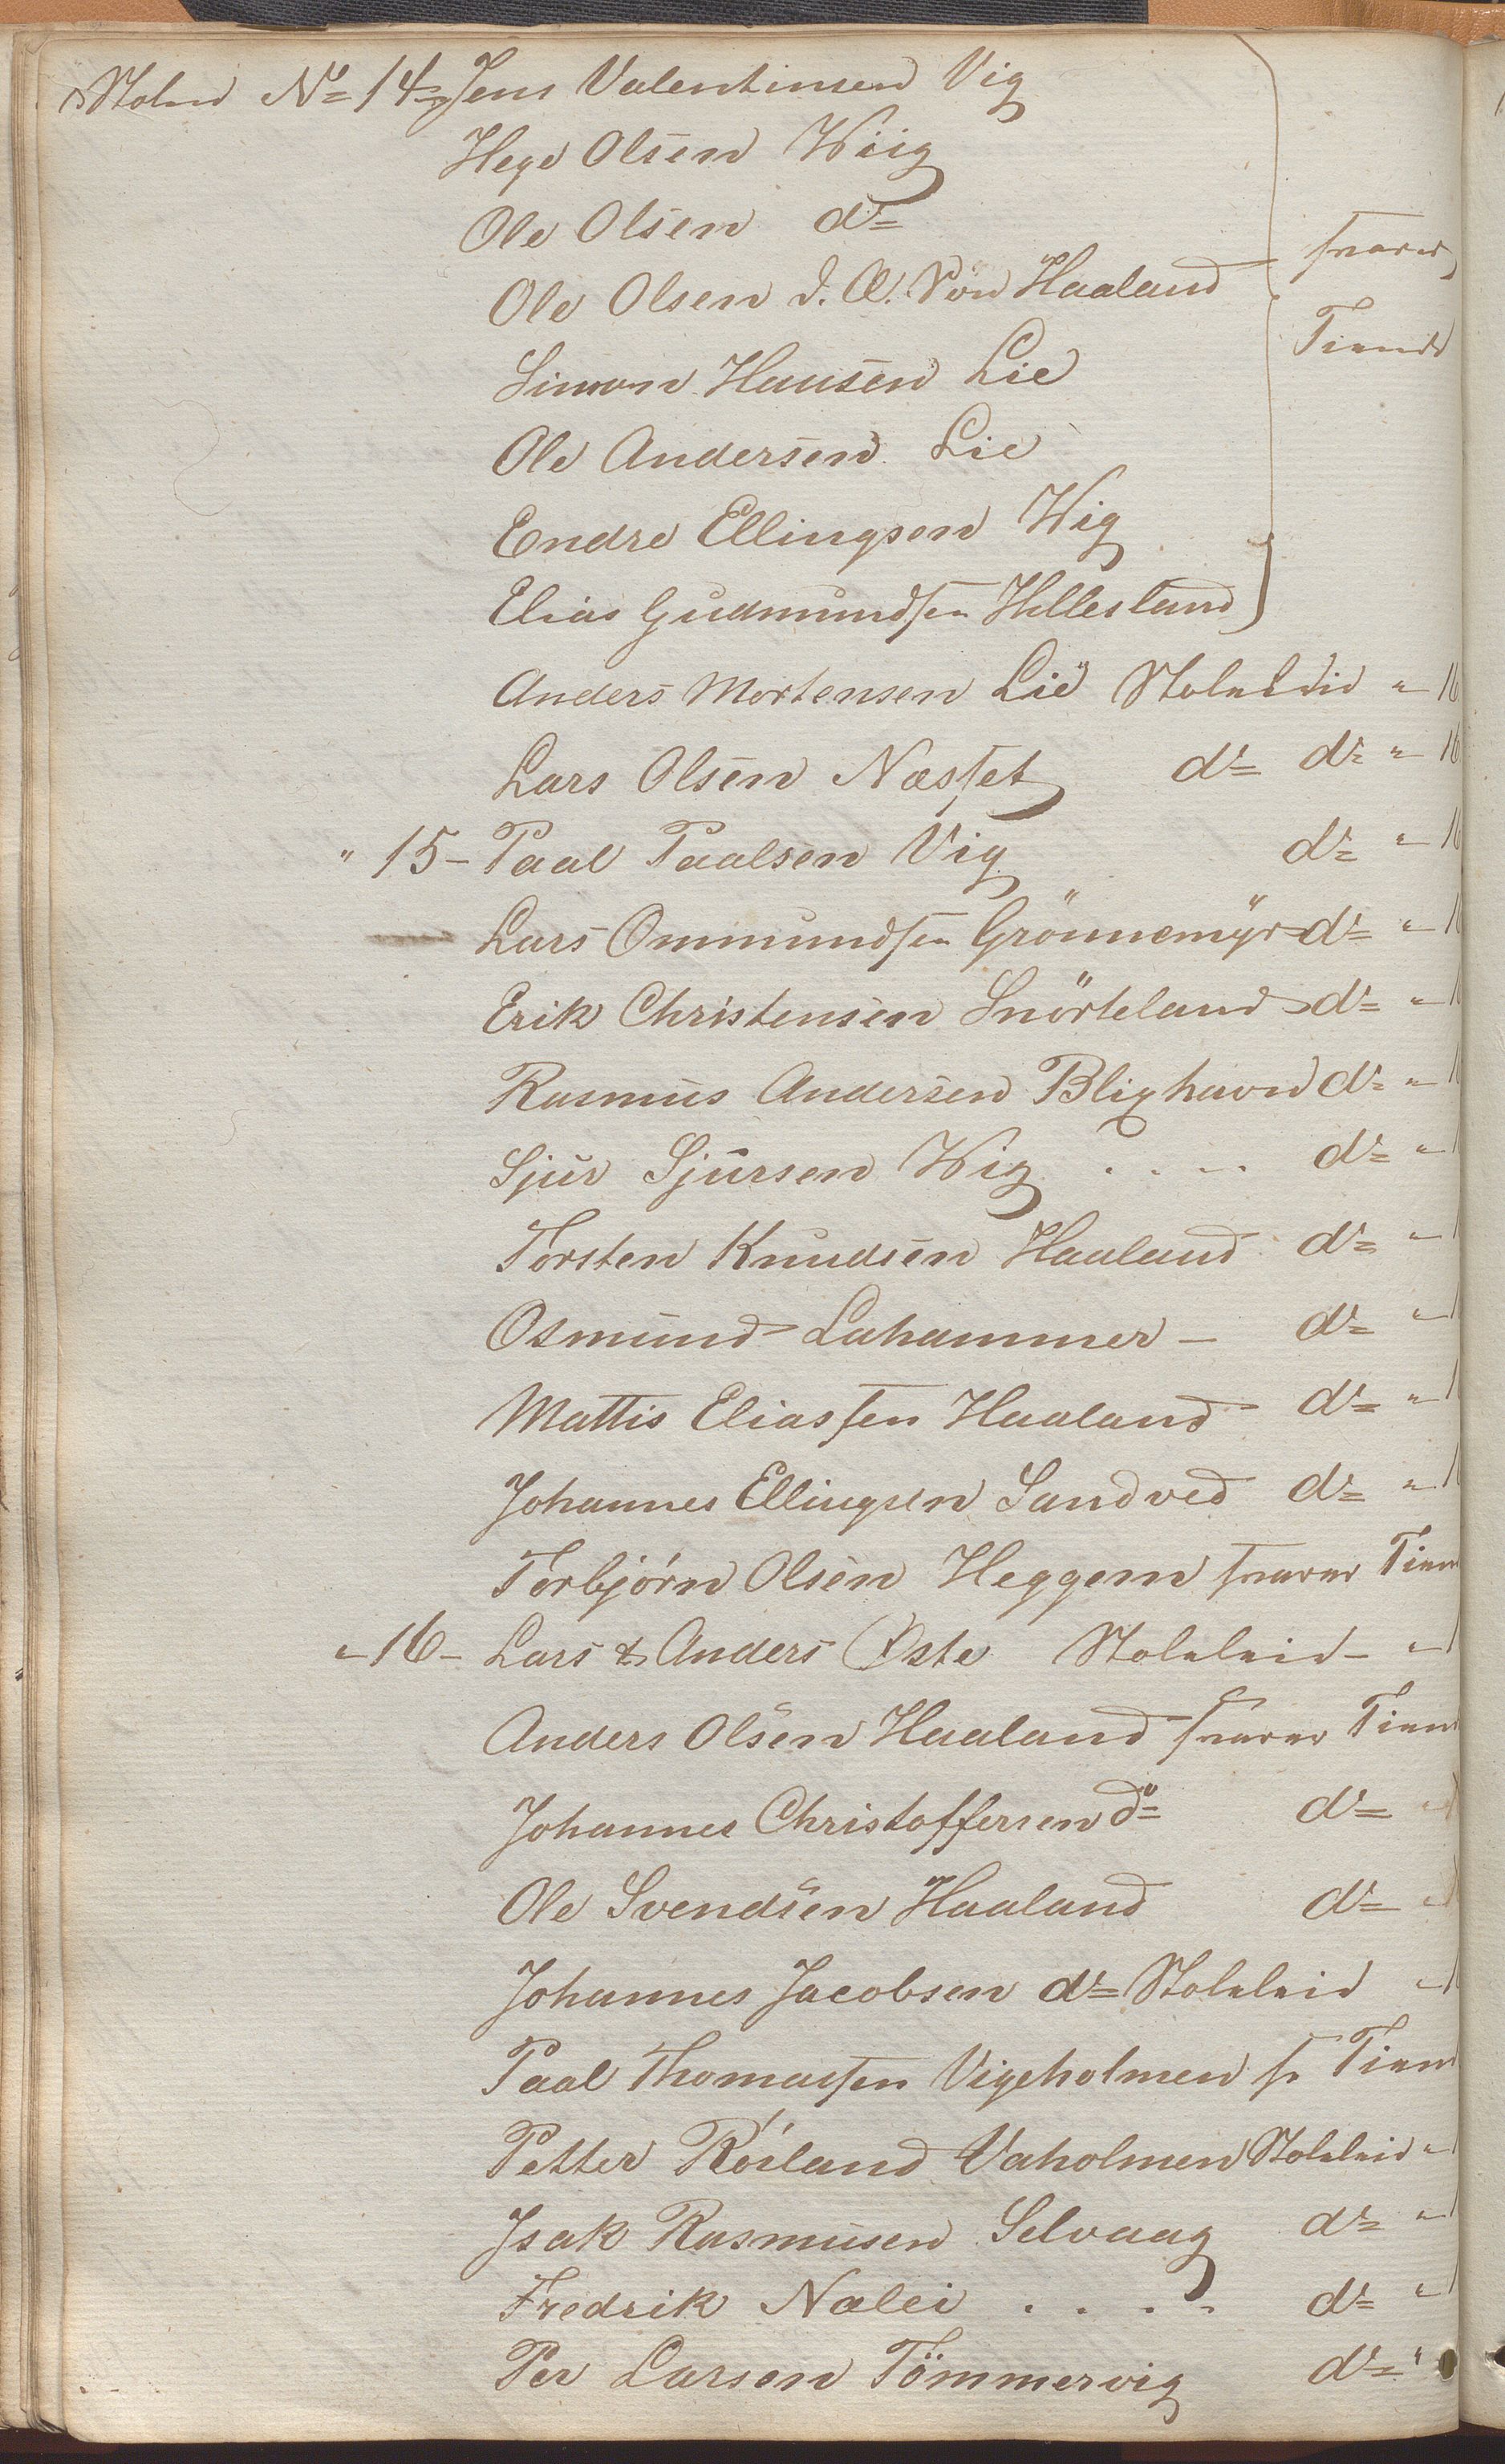 Stolen No 14 Jens Valentinsen Vig
Hege Olsen Wiig
Ole Olsen do
Ole Olsen Haaland svarer
Simon Hansen Lie Tiende
Ole Andersen Lie
Endre Ellingsen Wig
Elias Gudmundsen Hillesland
Anders Mortensen Lie Stoleleie " 16
Lars Olsen Næsset do do " 16
" 15 - Paal Paalsen Vig do " 16
Lars Ommundsen Grönnemyr do " 1
Erik Christensen Snörteland do " 1
Rasmus Andersen Blighavn do " 1
Sjur Sjursen Wig . . . . do " 1
Torsten Knudsen Haaland do " 1
Osmund Lahammer - do " 1
Mattis Eliassen Haaland do " 1
Johannes Ellingsen Sandved do " 1
Torbjörn Olsen Heggem svarer Tien
" 16 - Lars & Anders Øste Stoleleie - " 1
Anders Olsen Haaland svarer Tiend
Johannes Christoffersen do do
Ole Svendsen Haaland do
Johannes Jacobsen do Stoleleie " 1
Paal Thomassen Vigeholmen sv Tiend
Petter Röiland Vaholmen Stoleleie " 1
Isak Rasmusen Selvaag do " 1
Fredrik Nalei . . . . do " 1
Per Larsen Tömmervig do "